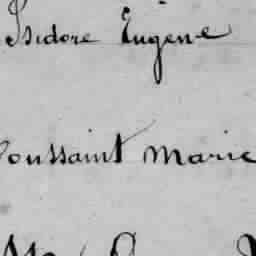 Isidore Eugène
Toussaint Marie